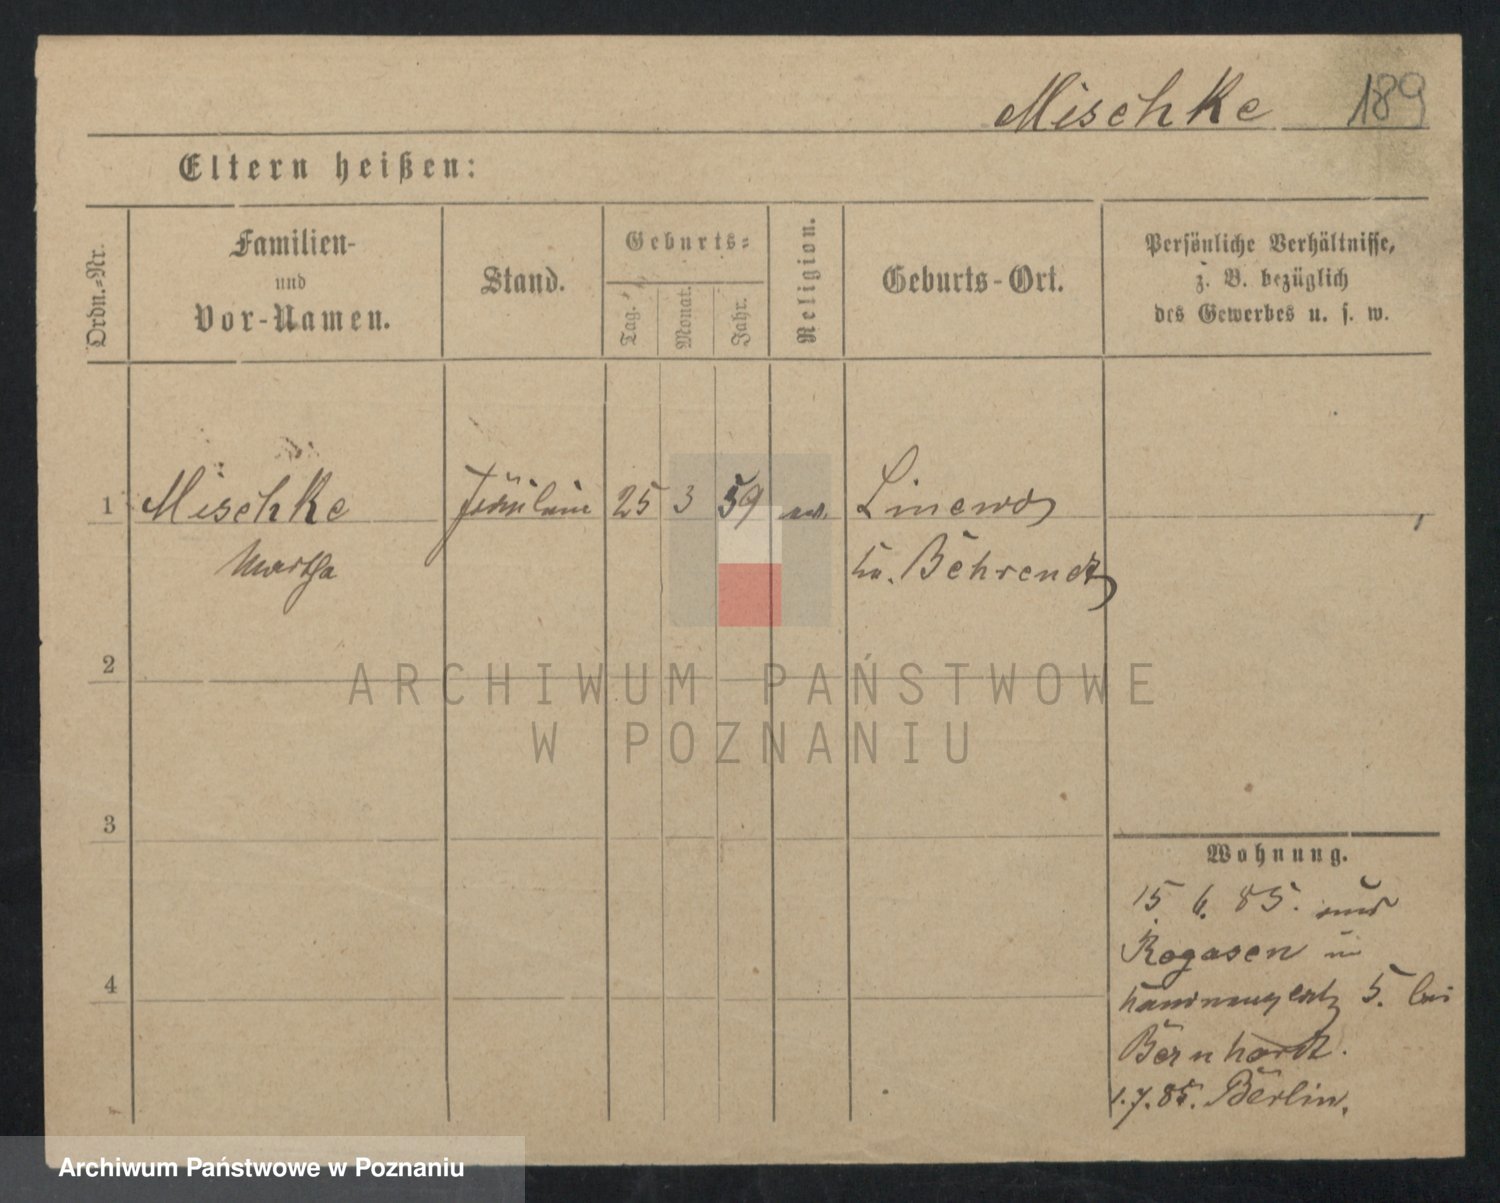 Mischke 189
Eltern heißen:
Ordn.-Nr.
Familien-
und
Vor-Namen.
Stand.
Geburts-
Tag.
Monat.
Jahr.
Religion.
Geburts-Ort.
Persönliche Verhältnisse,
z. B. bezüglich
des Gewerbes u. s. w.
1 Mischke Fräulein 25 3 59 ev. Linewo
Martha Kr. Behrendt
2
3
4
Wohnung.
15 6. 85. aus
Rogasen in
5. bei
Bernhardt.
1.7.85. Berlin.
ARCHIWUM PAŃSTWOWE
W POZNANIU
Archiwum Państwowe w Poznaniu